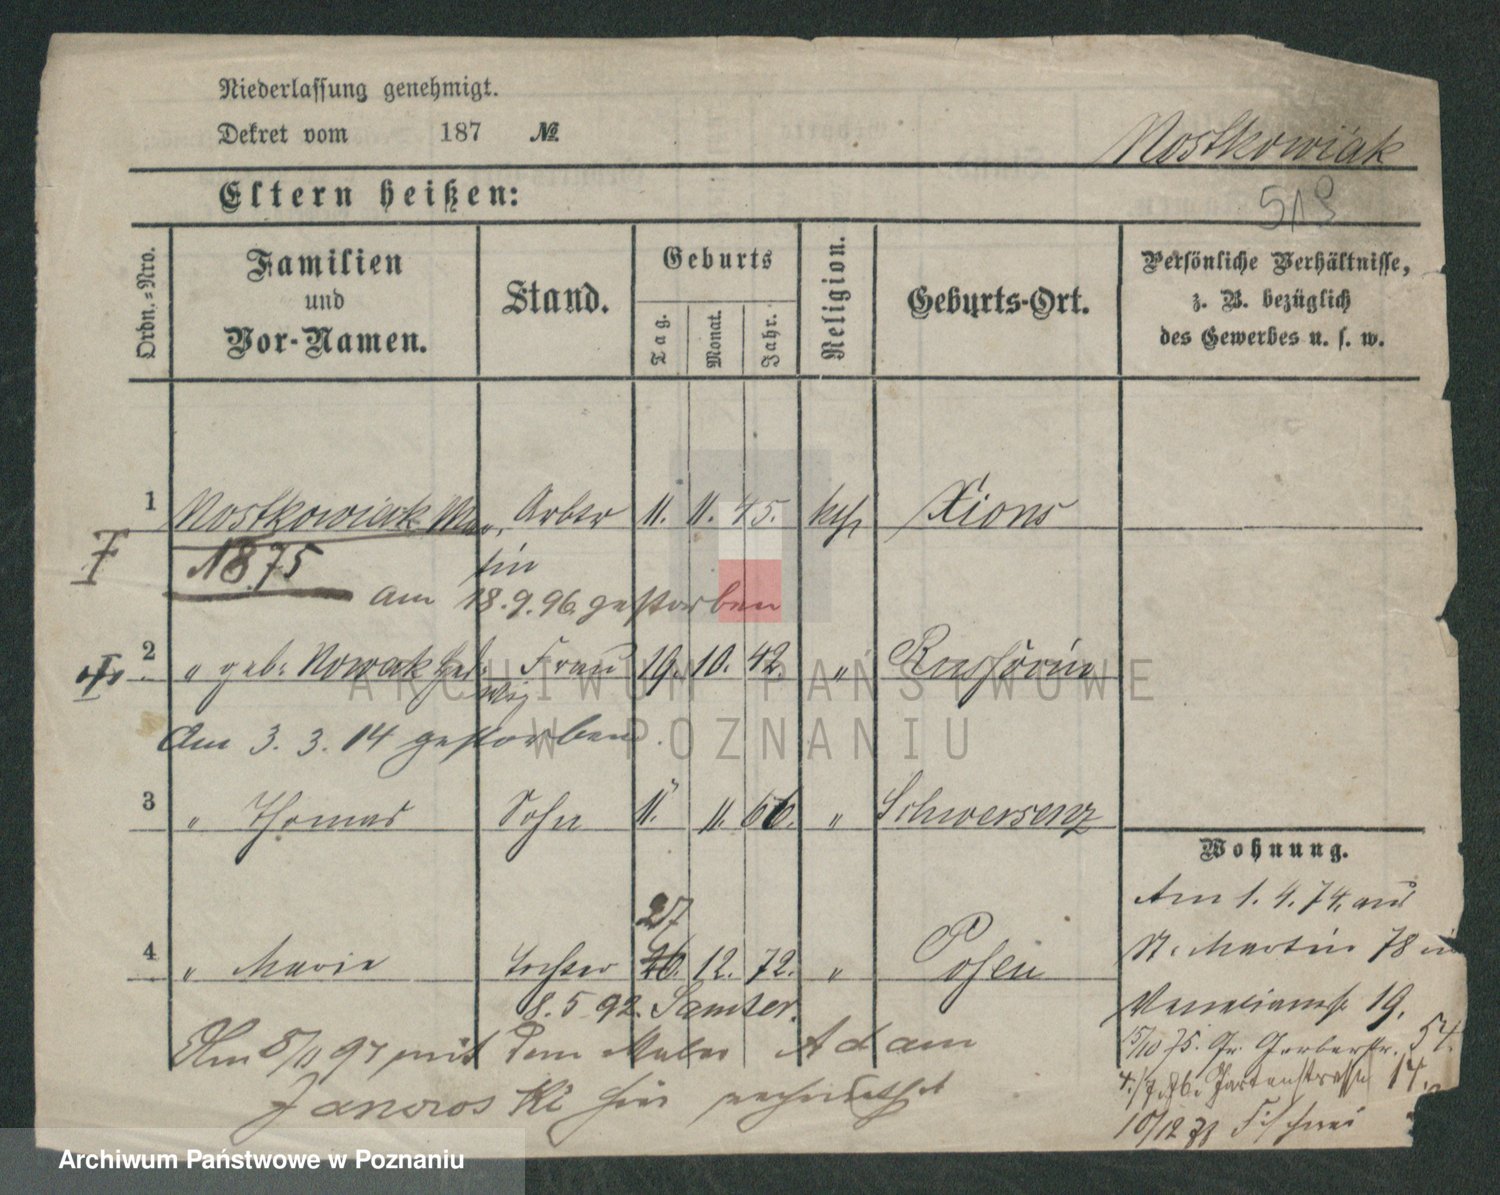 Niederlassung genehmigt.
Dekret vom 187 №
Nostkowiak
Eltern heißen:
519
Ordn.-Nro.
Familien
und
Vor-Namen.
Stand.
Geburts
Tag.
Monat.
Jahr.
Religion.
Geburts-Ort.
Persönliche Verhältnisse,
z. B. bezüglich
des Gewerbes u. s. w.
1 Nostkowiak Mar- Arbtr 11. 11. 45. kth Xions
tin
1875
am 18.9.96 gestorben
2 " geb: Nowak Hed- Frau 19. 10. 42. "
wig
Am 3. 3. 14 gestorben.
3 " Thomas Sohn 11. 11. 66. " Schwersenz
Wohnung.
Am 1. 4. 74. aus
27
4 " Marie Tochter 26. 12. 72. " Posen
St. Martin 78 in
8. 5 92. Samter.
19.
Am 8/11 97 mit dem Maler Adam
15/10 75. Gr. Gerberstr. 54.
Janowski hier verheirathet
4./7.76. Gartenstrasse 14.
10/12 78
ARCHIWUM PAŃSTWOWE
W POZNANIU
Archiwum Państwowe w Poznaniu